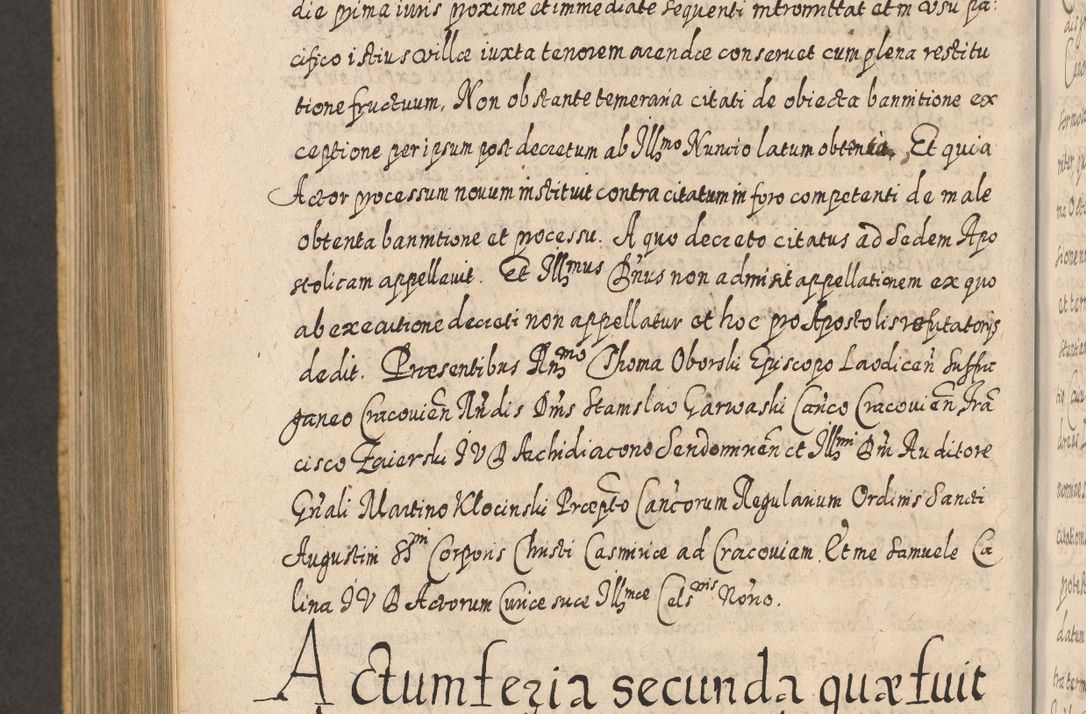 die prima iuris proxime et immediate sequenti intromittat et in usu pa:
cifico istius villæ iuxta tenorem arendæ conseruet cum plena restitu
tione fructuum, Non obstante temeraria citati de obiecta bannitione ex
ceptione per ipsum post decretum ab Illmo Nuncio latum obtenta. Et quia
Actor processum nouum instituit contra citatum in foro competenti de male
obtenta bannitione et processu. A quo decreto citatus ad Sedem Apo
stolicam appellauit. Et Illmus Dn̄us non admisit appellationem ex quo
ab executione decreti non appellatur et hoc pro Apostolis refutatorijs
dedit. Præsentibus Rn̄mo Thoma Oborski Episcopo Laodiceñ Suffra
ganeo Cracovien̄ Rn̄dis Dn̄is Stanislao Garwaski Can̄co Cracovien̄, Frā
cisco Zaierski IVD Archidiacono Sendomirien̄ et Illmi Dn̄i Auditore
Gn̄ali Martino Klocinski Præpto Can̄corum Regularium Ordinis Sancti
Augustini SSmi Corporis Christi Casimiriæ ad Cracoviam. Et me Samuele Ca
lina IVD Actorum Curiæ suæ Illmæ Celsnis Nōrio.
Actum feria secunda quæ fuit